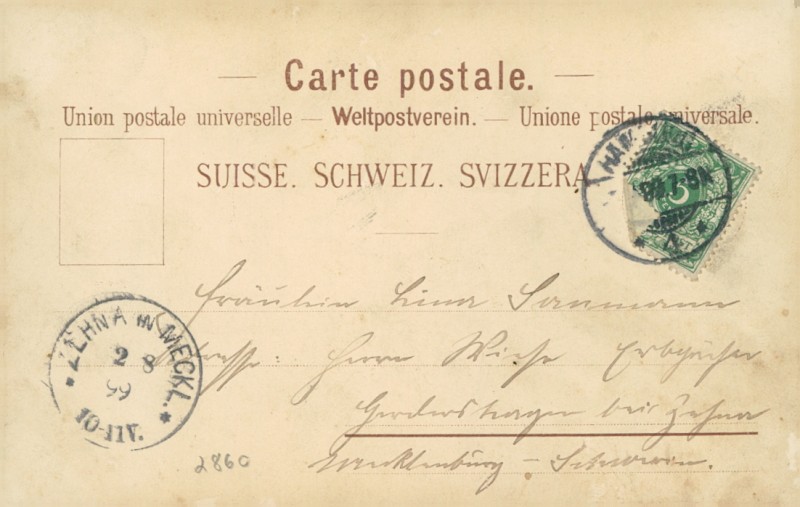 Carte postale.
Union postale universelle — Weltpostverein. — Unione postale universale.
SUISSE. SCHWEIZ. SVIZZERA
5
4
Fräulein Lina Saumann
Adresse: Herrn Wiese Erbpächter
bei Zehna
Mecklenburg - Schwerin.
ZEHNA IN MECKL.
2 8
99
10-11V.
2860